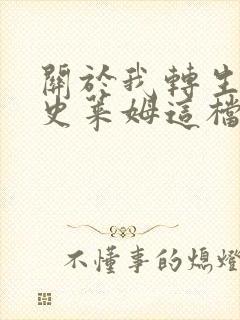 關於我轉生
史萊姆這檔
不懂事的熄燈